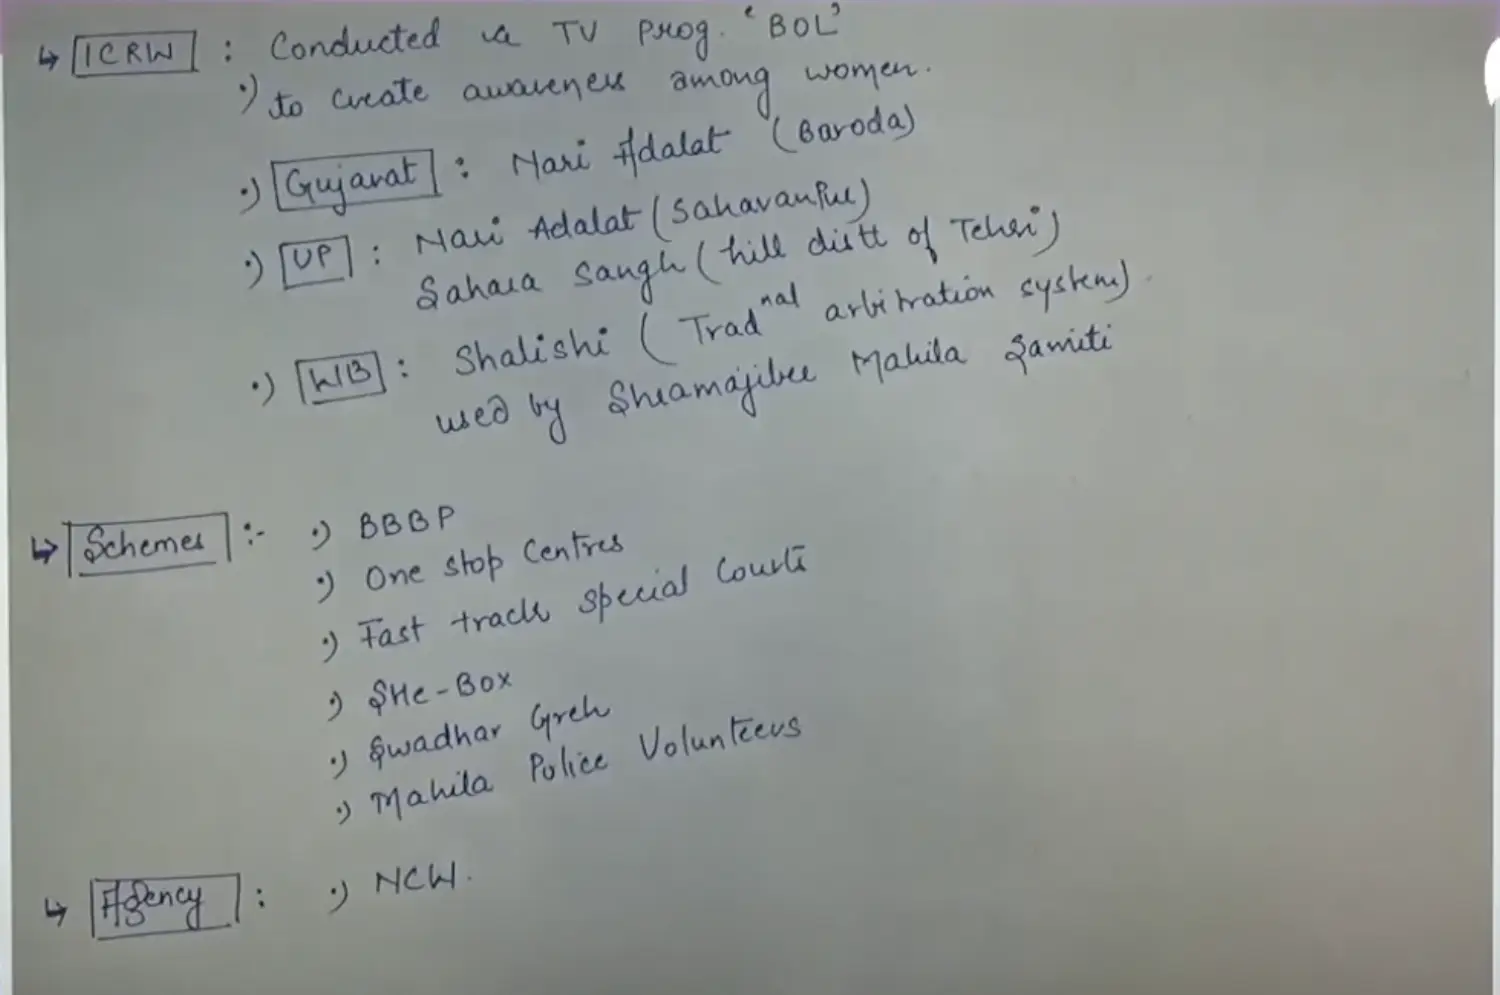 ↳ ICRW : Conducted a TV Prog. 'BOL'
•) to create awareness among women.
•) Gujarat : Nari Adalat (Baroda)
•) UP : Nari Adalat (Saharanpur)
Sahara Sangh (hill distt of Tehri)
•) WB : Shalishi (Trad^nal arbitration system)
used by Shramajibee Mahila Samiti
↳ Schemes :- •) BBBP
•) One stop Centres
•) Fast track special Courts
•) SHe-Box
•) Swadhar Greh
•) Mahila Police Volunteers
↳ Agency : •) NCW.